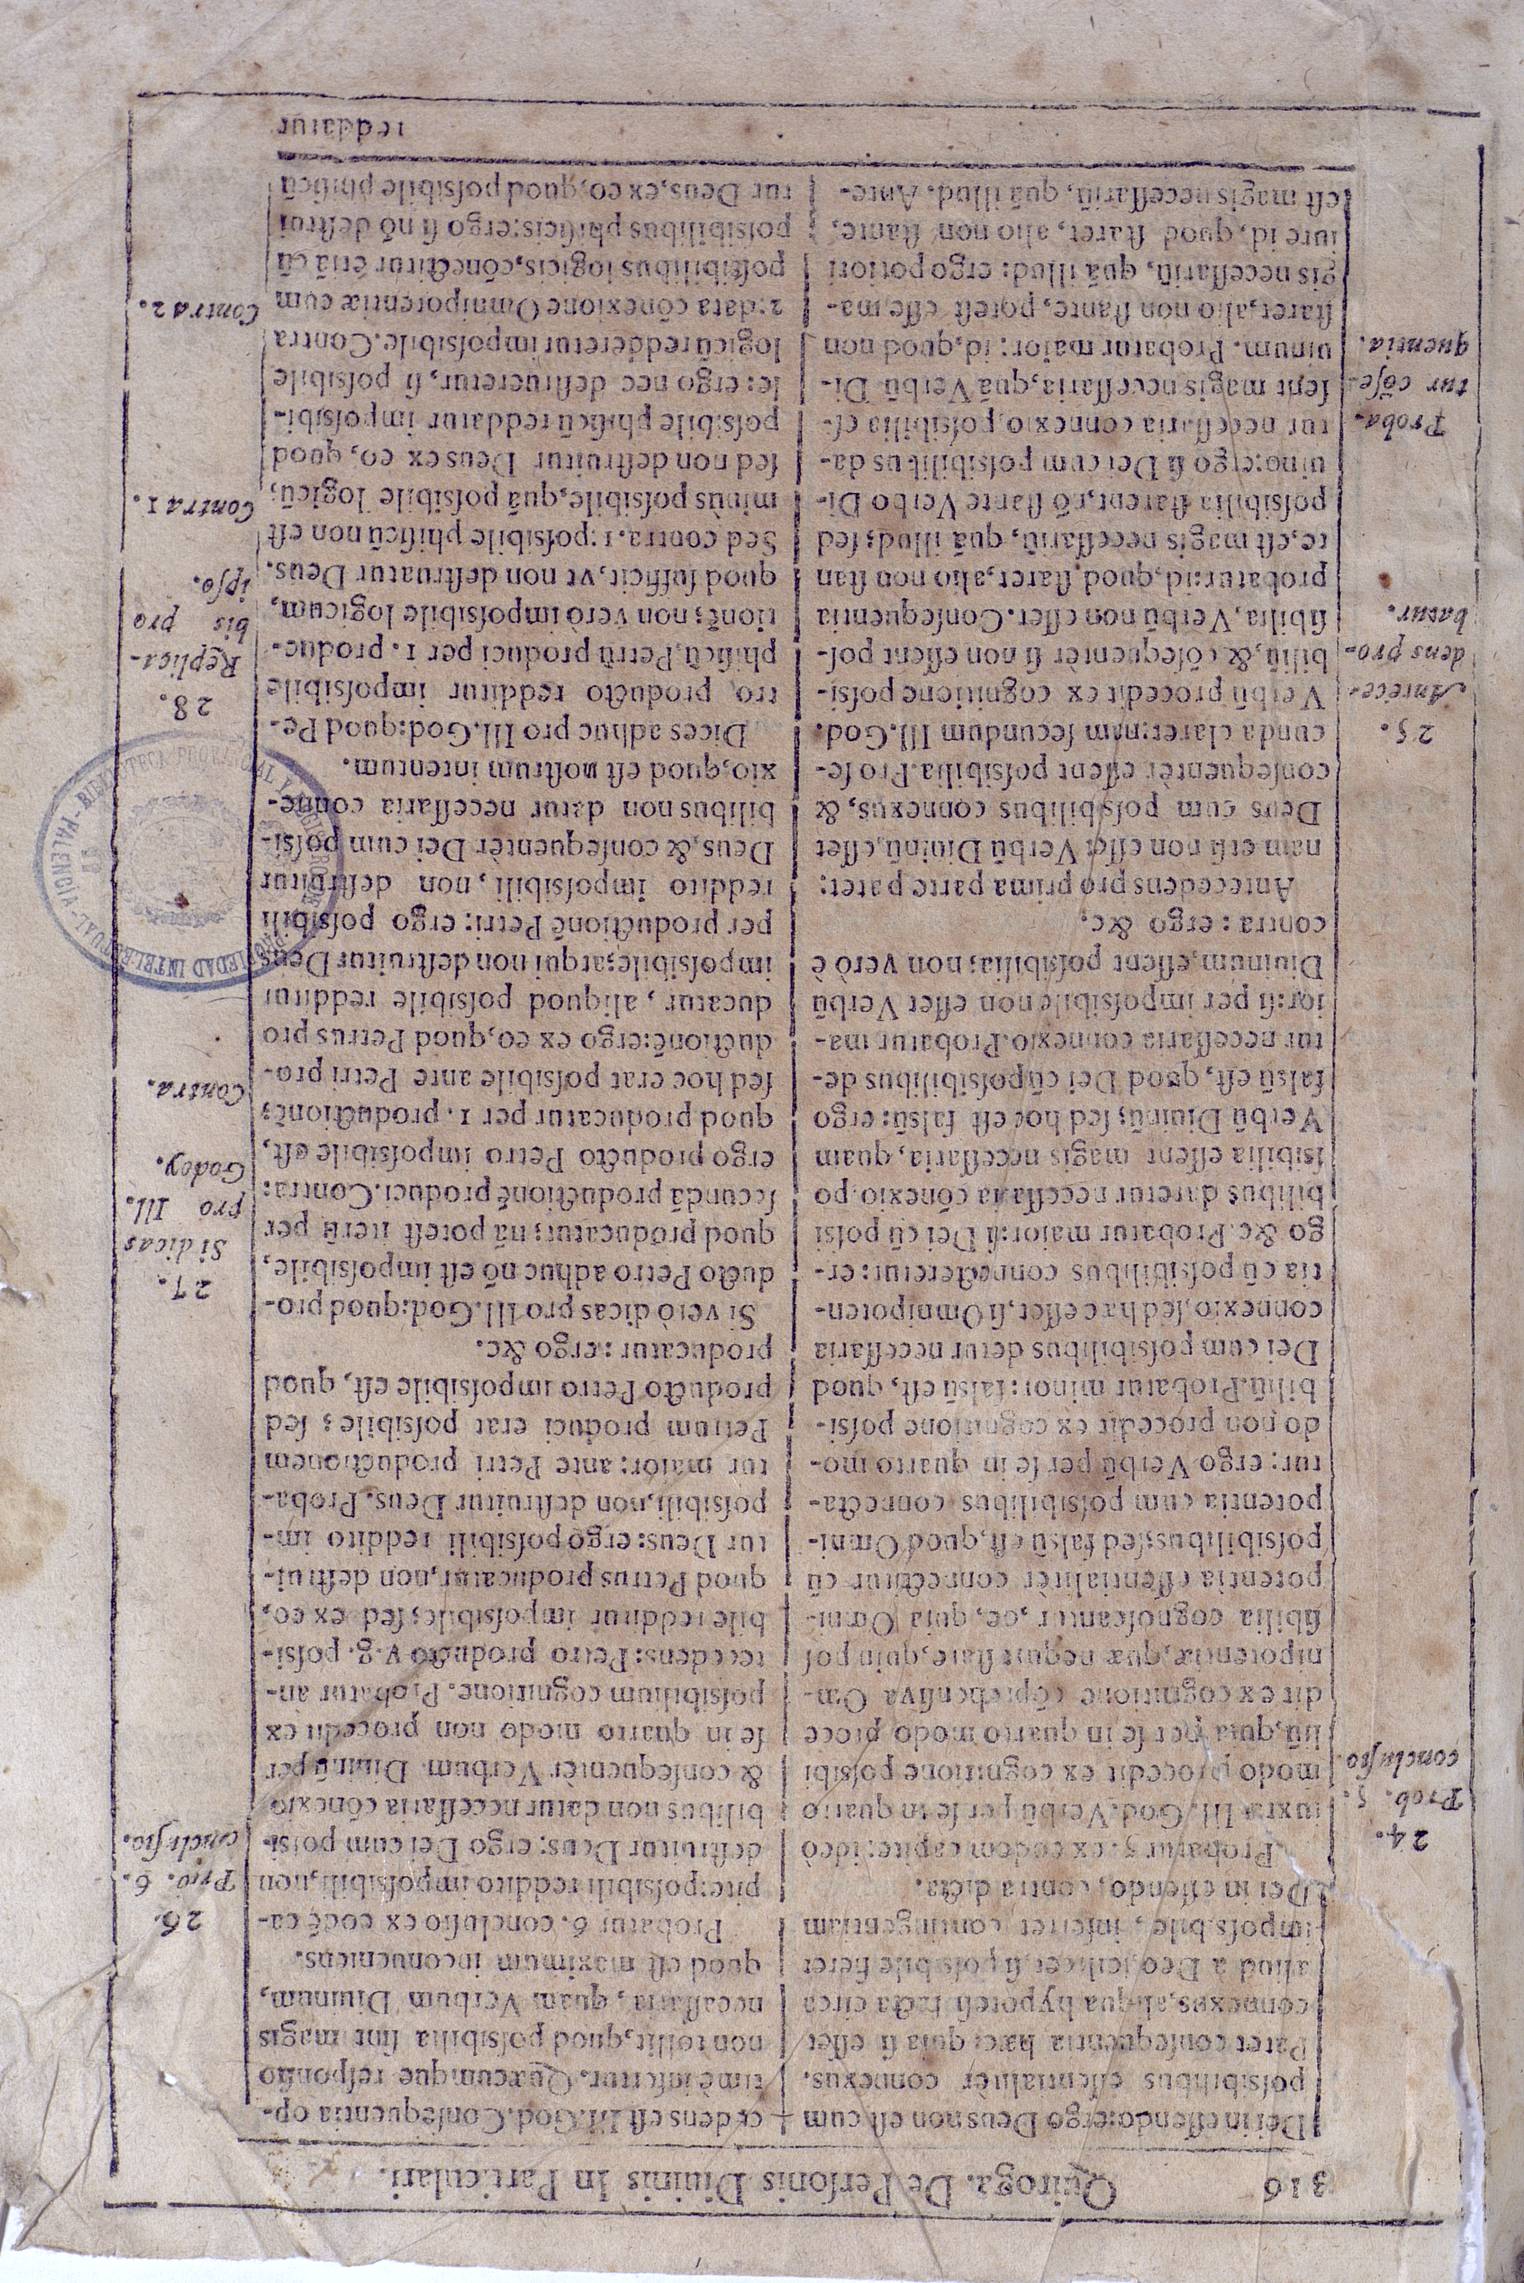 316 Quiroga. De Perſonis Diuinis In Particulari.
Dei in eſſendo: ergo Deus non eſt cum
poſsibilibus eſſentialitèr connexus.
Patet conſequentia hæc; quia ſi eſſet
connexus, aliqua hypoteſi facta circa
aliud à Deo, ſcilicet, ſi poſsibile fieret
impoſsibile, inferret contingentiam
Dei in eſſendo, contra dicta.
24.
Prob. 5.
concluſio.
Probatur 5. ex eodem capite: ideò
iuxta Ill. God. Verbũ per ſe in quarto
modo procedit ex cognitione poſsibi
liũ, quia per ſe in quarto modo proce
dit ex cognitione cõprehenſiva Om-
nipotentiæ, quæ nequit ſtare, quin poſ
ſibilia cognoſcantur, &c, quia Omni-
potentia eſſentialitèr connectitur cũ
poſsibilibus; ſed falsũ eſt, quod Omni-
potentia cum poſsibilibus connecta-
tur: ergo Verbũ per ſe in quarto mo-
do non procedit ex cognitione poſsi-
biliũ. Probatur minor: falsũ eſt, quod
Dei cum poſsibilibus detur neceſſaria
connexio, ſed hæc eſſet, ſi Omnipoten-
tia cũ poſsibilibus connecteretur: er-
go &c. Probatur maior: ſi Dei cũ poſsi
bilibus daretur neceſſaria cõnexio, po
ſsibilia eſſent magis neceſſaria, quam
Verbũ Diuinũ; ſed hoc eſt falsũ: ergo
falsũ eſt, quod Dei cũ poſsibilibus de-
tur neceſſaria connexio. Probatur ma-
ior: ſi per impoſsibile non eſſet Verbũ
Diuinum, eſſent poſsibilia; non verò è
contra: ergo &c.
Antecedens pro prima parte patet:
nam etſi non eſſet Verbũ Diuinũ, eſſet
Deus cum poſsibilibus connexus, &
conſequentèr eſſent poſsibilia. Pro ſe-
cunda claret: nam ſecundum Ill. God.
25.
Antece-
dens pro-
batur.
Verbũ procedit ex cognitione poſsi-
biliũ, & cõſequentèr ſi non eſſent poſ-
ſibilia, Verbũ non eſſet. Conſequentia
probatur: id, quod ſtaret, alio non ſtan
te, eſt magis neceſſariũ, quã illud; ſed
poſsibilia ſtarent, nõ ſtante Verbo Di-
uino: ergo ſi Dei cum poſsibilibus da-
tur neceſſaria connexio, poſsibilia eſ-
ſent magis neceſſaria, quã Verbũ Di-
Proba-
tur cõſe-
quentia.
uinum. Probatur maior: id, quod non
ſtaret, alio non ſtante, poteſt eſſe ma-
gis neceſſariũ, quã illud: ergo potiori
iure id, quod ſtaret, alio non ſtante,
eſt magis neceſſariũ, quã illud. Ante-
cedens eſt Ill. God. Conſequentia op-
timè infertur. Quæcumque reſponſio
non tollit, quod poſsibilia ſint magis
neceſſaria, quam Verbum Diuinum,
quod eſt maximum inconueniens.
26.
Pro. 6.
concluſio.
Probatur 6. concluſio ex eodẽ ca-
pite: poſsibili reddito impoſsibili, non
deſtruitur Deus: ergo Dei cum poſsi-
bilibus non datur neceſſaria cõnexio
& conſequentèr Verbum Diuinũ per
ſe in quarto modo non procedit ex
poſsibilium cognitione. Probatur an-
tecedens: Petro producto v.g. poſsi-
bile redditur impoſsibile; ſed ex eo,
quod Petrus producatur, non deſtrui-
tur Deus: ergo poſsibili reddito im-
poſsibili, non deſtruitur Deus. Proba-
tur maior: ante Petri productionem
Petrum produci erat poſsibile; ſed
producto Petro impoſsibile eſt, quod
producatur: ergo &c.
27.
Si dicas
pro Ill.
Godoy.
Si verò dicas pro Ill. God: quod pro-
ducto Petro adhuc nõ eſt impoſsibile,
quod producatur; nã poteſt iterũ per
ſecundã productionẽ produci. Contra:
Contra.
ergo producto Petro impoſsibile eſt,
quod producatur per 1. productionẽ;
ſed hoc erat poſsibile ante Petri pro-
ductionẽ: ergo ex eo, quod Petrus pro
ducatur, aliquod poſsibile redditur
impoſsibile; atqui non deſtruitur Deus
per productionẽ Petri: ergo poſsibili
reddito impoſsibili, non deſtruitur
Deus, & conſequentèr Dei cum poſsi-
bilibus non datur neceſſaria conne-
xio, quod eſt noſtrum intentum.
28.
Replica-
bis pro
ipſo.
Dices adhuc pro Ill. God: quod Pe-
tro producto redditur impoſsibile
phiſicũ, Petrũ produci per 1. produc-
tionẽ; non verò impoſsibile logicum,
quod ſufficit, vt non deſtruatur Deus.
Contra 1.
Sed contra. 1: poſsibile phiſicũ non eſt
minùs poſsibile, quã poſsibile logicũ;
ſed non deſtruitur Deus ex eo, quod
poſsibile phiſicũ reddatur impoſsibi-
le: ergo nec deſtrueretur, ſi poſsibile
logicũ redderetur impoſsibile. Contra
Contra 2.
2: data cõnexione Omnipotentiæ cum
poſsibilibus logicis, cõnectitur ètiã cũ
poſsibilibus phiſicis: ergo ſi nõ deſtrui
tur Deus, ex eo, quod poſsibile phiſicũ
reddatur
BIBLIOTECA PROVINCIAL
PROPIEDAD INTELECTUAL - PALENCIA